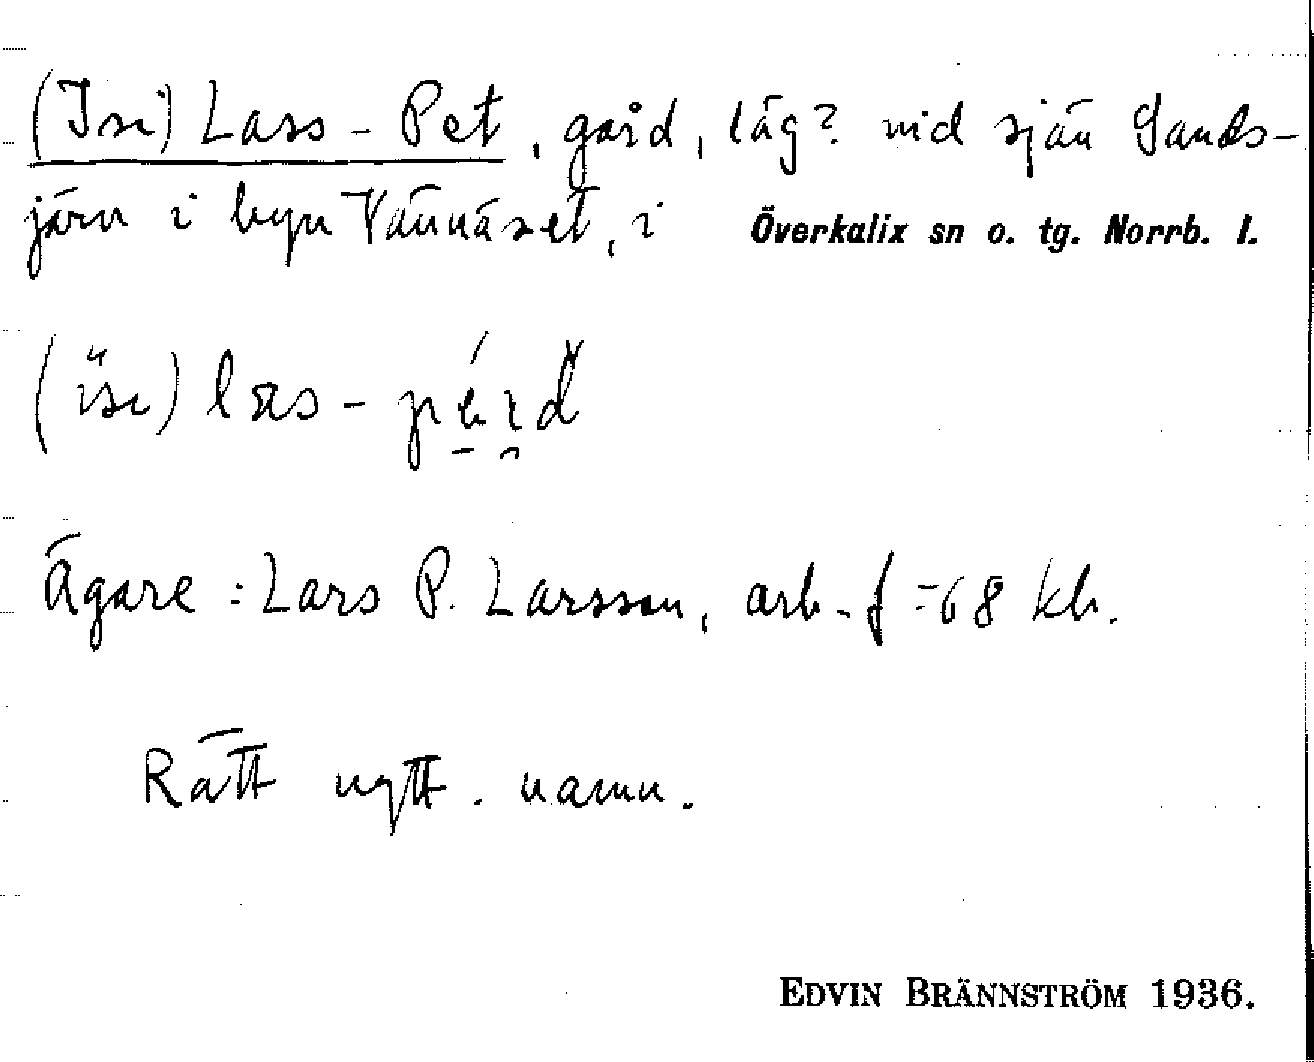 (Isi) Lass-Pet, gård, läg? vid sjön Sands-
järv i byn Vännäset, i Överkalix sn o. tg. Norrb. l.
(i̋sı) las-
Ägare: Lars P. Larsson, arb. f -68 kh.
Rätt nytt. namn.
EDVIN BRÄNNSTRÖM 1936.